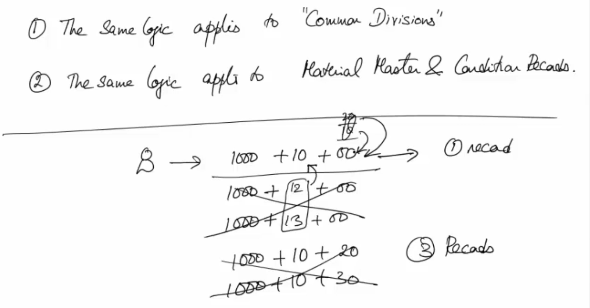 ① The Same logic applis to "Common Divisions"
② The same logic appli to Material Master & Condition Recads.
B → 1000 + 10 + 00 → ① recad
1000 + 12 + 00
1000 + 13 + 00
1000 + 10 + 20 ③ Recads
1000 + 10 + 30